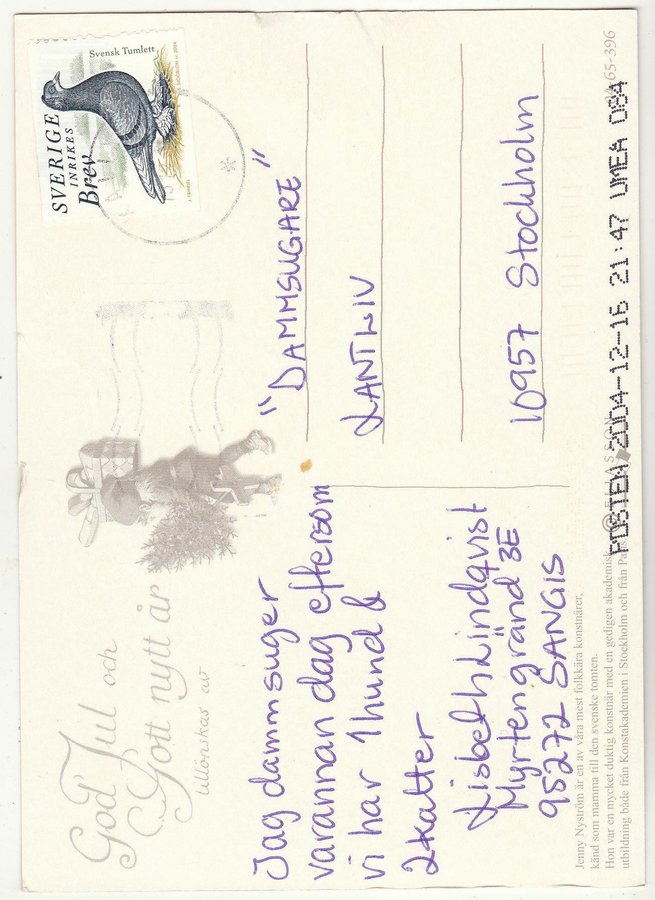 God Jul och
Gott nytt år
tillönskas av
Jag dammsuger
varannan dag eftersom
vi har 1 hund &
2 katter
Lisbeth Lindqvist
Myrtengränd 3E
95272 SANGIS
Svensk Tumlett
SVERIGE
INRIKES
Brev
"DAMMSUGARE"
LANTLIV
10957 Stockholm
Jenny Nyström är en av våra mest folkkära konstnärer,
känd som mamma till den svenske tomten.
Hon var en mycket duktig konstnär med en gedigen akademisk
utbildning både från Konstakademien i Stockholm och från
65-396
POSTEN 2004-12-16 21:47 UMEA 084